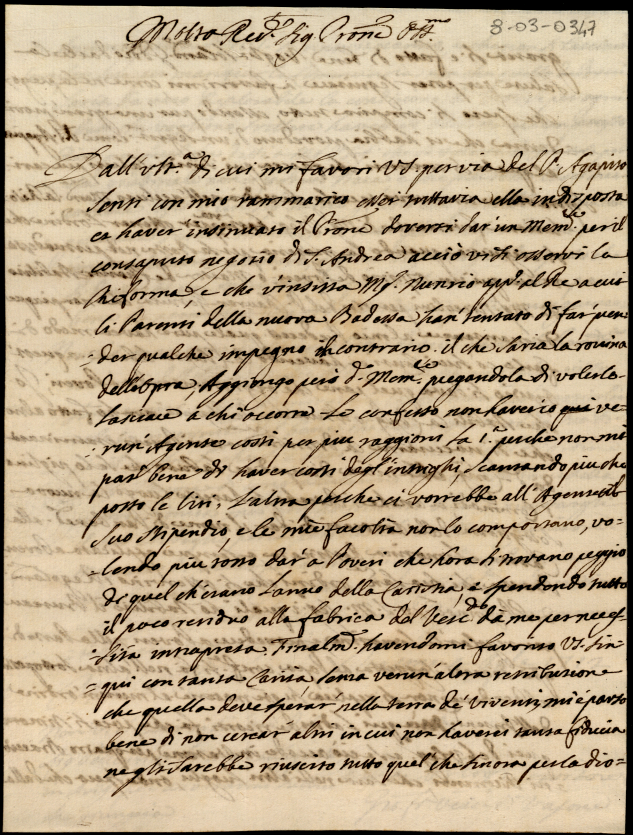 8-03-0347
Molto Red.º Sig Prone Oss.mo
Dall'ult.a di cui mi favori VS. per via del P. Agapito
sentì con mio rammarico esser tuttavia ella indisposta
ca haver insinuato il Prone doversi dar' un Mem.le per il
consaputo negozio di S. Andrea acciò vi si osservi la
Riforma, e che v'insista M.r Nunzio app.o al Re a cui
li Parenti della nuova Badessa han' tentato di far' pren-
-der qualche impegno in contrario. il che saria la rovina
dell'opra, Aggiongo però d.o Mem.le, pregandola di volerlo
lasciare à chi occorre. Le confesso non haver io qui ve-
-run' Agente costì per più raggioni. La 1.a perche non mi
par' bene di haver costì degl'intrighi, scansando più che
posso le liti, L'altra perche ci vorrebbe all'Agente il
suo stipendio, e le mie facoltà non lo comportano, vo-
-lendo più tosto dar' a Poveri che hora si trovano peggio
di quel ch'erano l'anno della Caristia, e spendendo tutto
il poco residuo alla fabrica del Vesc.do da me per neces-
-sità intrapresa. Finalm.te havendomi favorito VS. sin-
qui con tanta Carità, senza verun' altra retribuzione
che quella deve sperar' nella terra de' viventi, mi è parso
bene di non cercar' altri in cui non haverei tanta fiducia
ne gli sarebbe riuscito tutto quel' che sinora per la dio-